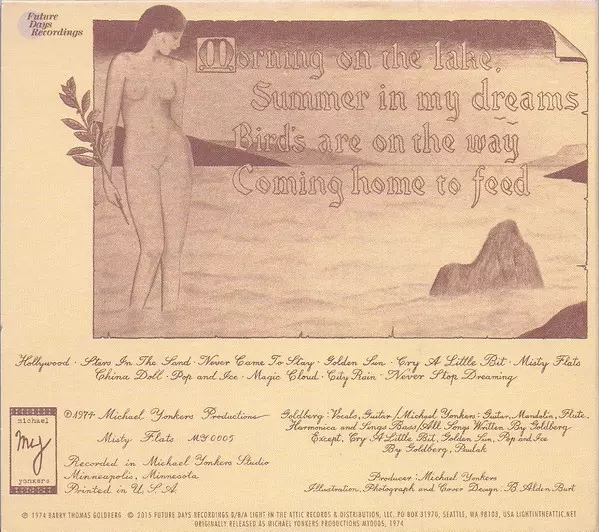 Future
Days
Recordings
Morning on the lake,
Summer in my dreams
Bird's are on the way
Coming home to feed
Hollywood · Stars In The Sand · Never Came To Stay · Golden Sun · Cry A Little Bit · Misty Flats
China Doll · Pop and Ice · Magic Cloud · City Rain · Never Stop Dreaming
michael
my
yonkers
©1974 Michael Yonkers Productions
Misty Flats MY0005
Recorded in Michael Yonkers Studio
Minneapolis, Minnesota
Printed in U.S.A.
Goldberg: Vocals, Guitar / Michael Yonkers: Guitar, Mandolin, Flute,
Harmonica and Songs Bass/All Songs Written By Goldberg
Except, Cry A Little Bit, Golden Sun, Pop and Ice
By Goldberg, Paulak
Producer: Michael Yonkers
Illustration, Photograph and Cover Design: B. Alden Burt
℗ 1974 BARRY THOMAS GOLDBERG © 2015 FUTURE DAYS RECORDINGS D/B/A LIGHT IN THE ATTIC RECORDS & DISTRIBUTION, LLC. PO BOX 31970, SEATTLE, WA 98103, USA LIGHTINTHEATTIC.NET
ORIGINALLY RELEASED AS MICHAEL YONKERS PRODUCTIONS MY0005, 1974